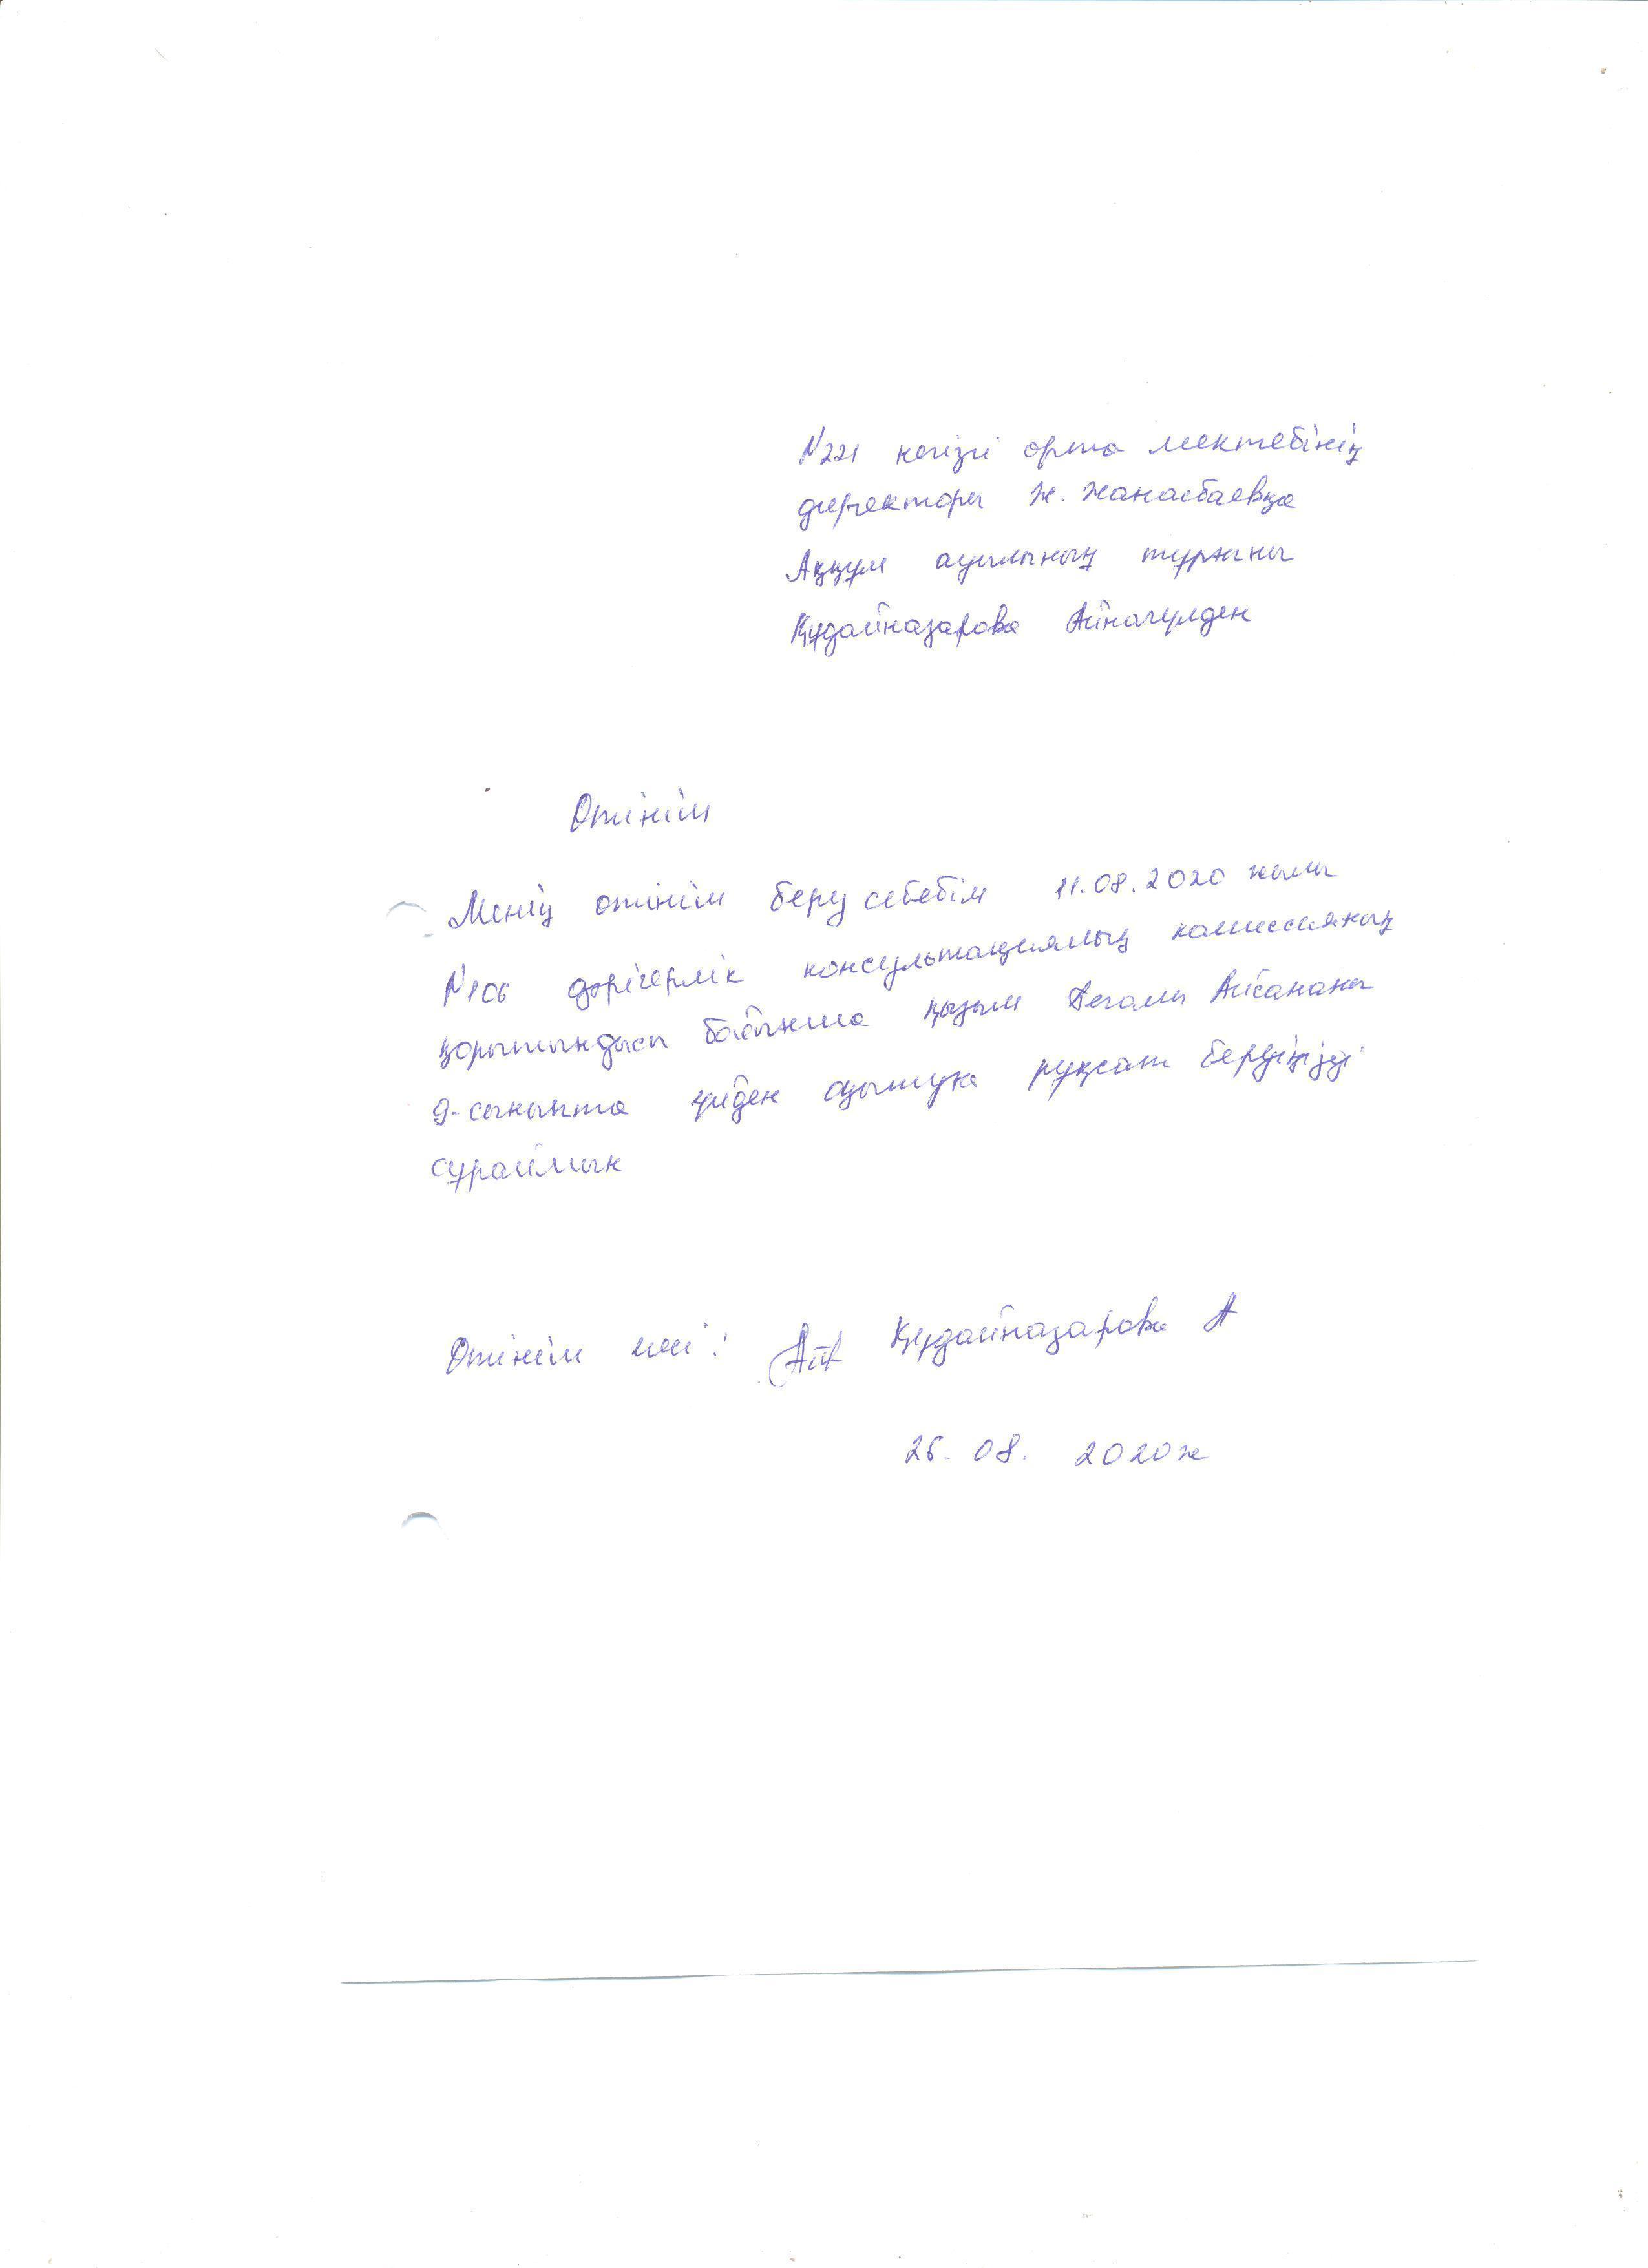 №221 негізгі орта мектебінің
директоры Ж. Жанасбаевқа
Аққұм ауылының тұрғыны
Құдайназарова Айнагүлден
Өтініш
Менің өтініш беру себебім 11.08.2020 жылы
№106 дәрігерлік консультациялық комиссияның
қорытындысы бойынша қызым Айсананы
9-сыныпта үйден оқытуға рұқсат беруіңізді
сұраймын
Өтініш иесі: Құдайназарова А
26. 08. 2020ж